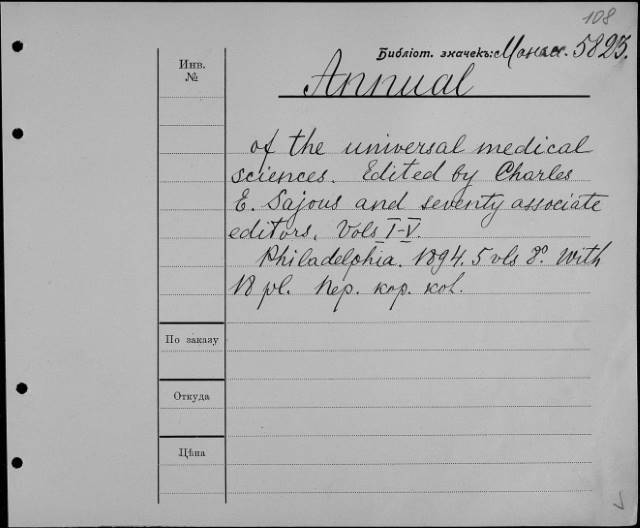 108
Библіот. значекъ: Манас. 5823.
Инв.
№
Annual
of the universal medical
sciences. Edited by Charles
E. Sajous and seventy associate
editors. Vols I-V.
Philadelphia. 1894. 5 vls 8°. With
18 pl. Пер. кор. кол.
По заказу
Откуда
Цѣна